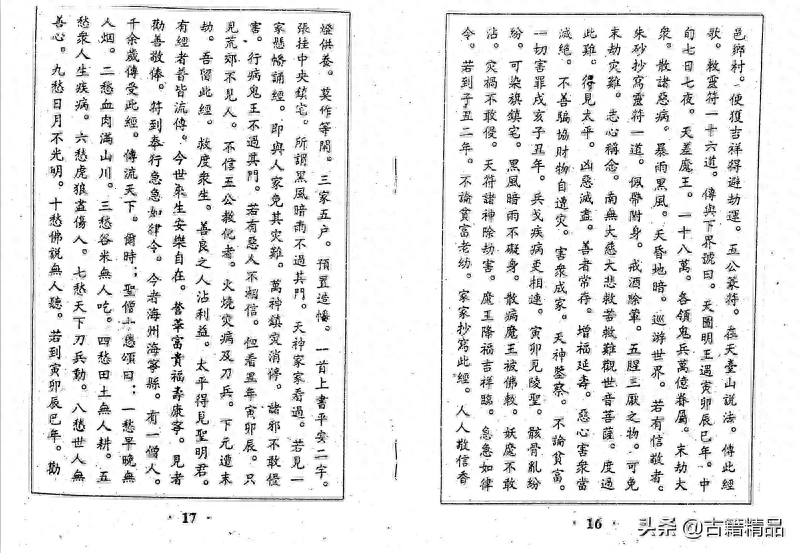 邑鄉村。便獲吉祥得避劫運。五公菉符。在天臺山說法。傳此經
歌。救靈符一十六道。傳與下界讖曰。天圖明王遇寅卯辰巳年。中
旬七日七夜。天差魔王。一十八萬。各領鬼兵萬億眷屬。末劫大
衆。散諸惡病。暴雨黑風。天昏地暗。巡游世界。若有信敬者。
朱砂抄寫靈符一道。佩帶附身。戒酒除葷。五腥三厭之物。可免
末劫灾難。志心稱念。南無大慈大悲救苦救難觀世音菩薩。度過
此難。得見太平。凶惡滅盡。善者常存。增福延壽。惡心害衆當
滅絕。不善騙協財物自遭灾。害衆成家。天神鑒察。不論貧富。
一切害罪戌亥子丑年。兵戈疾病更相連。寅卯見陵聖。骸骨亂紛
紛。可染旗鎮宅。黑風暗雨不礙身。散病魔王被佛敕。妖魔不敢
沾。灾禍不敢侵。天符諸神除劫害。魔王降福吉祥臨。急急如律
令。若到子丑二年。不論貧富老幼。家家抄寫此經。人人敬信香
· 16 ·
燈供養。莫作等閑。三家五户。預置造旛。一首上書平安二字。
張挂中央鎮宅。所謂黑風暗雨不過其門。天神家家看過。若見一
家懸旛誦經。即與人家免其灾難。萬神鎮灾消停。諸邪不敢侵
害。行病鬼王不過其門。若有惡人不相信。但看孟年寅卯辰。只
見荒郊不見人。不信五公教化者。火燒灾病及刀兵。下元遭末
劫。吾留此經。救度衆生。善良之人沾利益。太平得見聖明君。
有經者普皆流傳。今世來生安樂自在。榮華富貴福壽康寧。見者
勸善敬俸。符到奉行急急如律令。今者海州海寧縣。有一僧人。
千余歲傳受此經。傳流天下。爾時；聖僧十愁頌曰；一愁早晚無
人烟。二愁血肉滿山川。三愁谷米無人吃。四愁田土無人耕。五
愁衆人生疾病。六愁虎狼盡傷人。七愁天下刀兵動。八愁世人無
善心。九愁日月不光明。十愁佛說無人聽。若到寅卯辰巳年。勸
· 17 ·
头条 @古籍精品